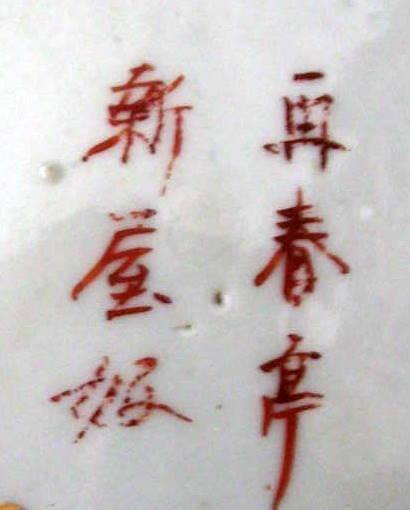 再春亭
新屋